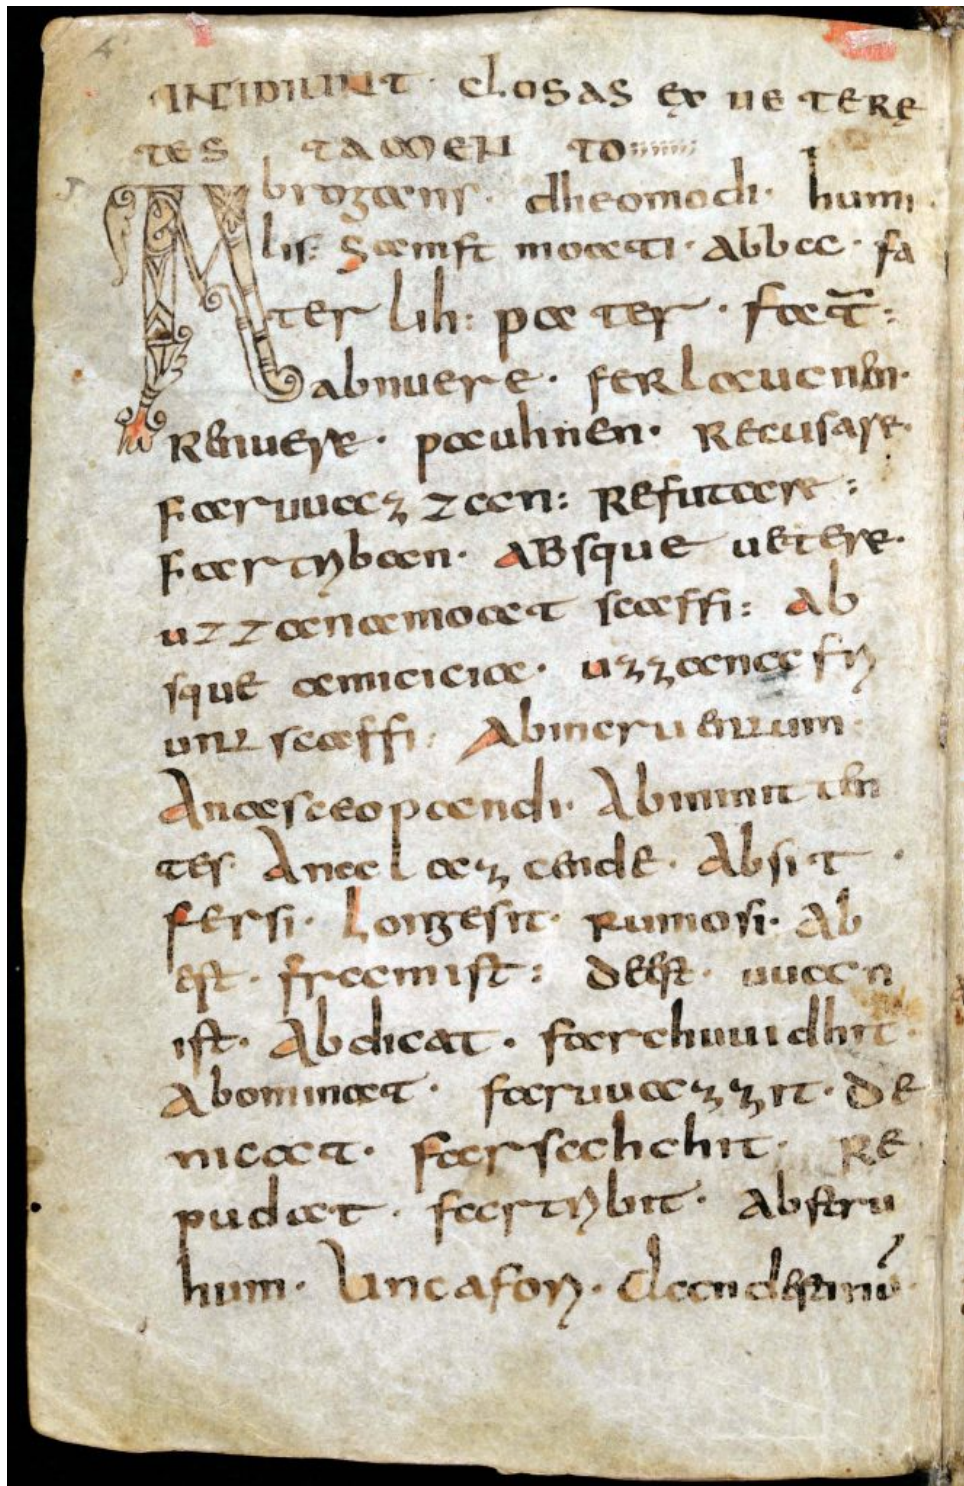 INCIPIUNT. CLOSAS EX UETERE
TES TAMEN TO
Abrogans. dheomodi. humi
lis: samft moati. abbaa. fa
ter lih: pater. fač:
abnuere. ferlaucnen.
Renuere. pauhnen. Recusare.
faruuazzan: Refutare:
fartriban. ABsque uetere.
uzzana moat scaffi: Ab
sque amicicia. uzzana fri
unt scaffi: Abincruentum.
Anasceopandi. Abinmitten
tes. Anaalazcende. Absit.
fersi. Longe sit. rumo si. Ab
est. fram ist: deest. uuan
ist. Abdicat. farchuuidhit.
Abominat. faruuazzit. de
nicat. farsahchit. Re
pudat. fartribit. Abstru
hum. Uncafori. Clandestinū.